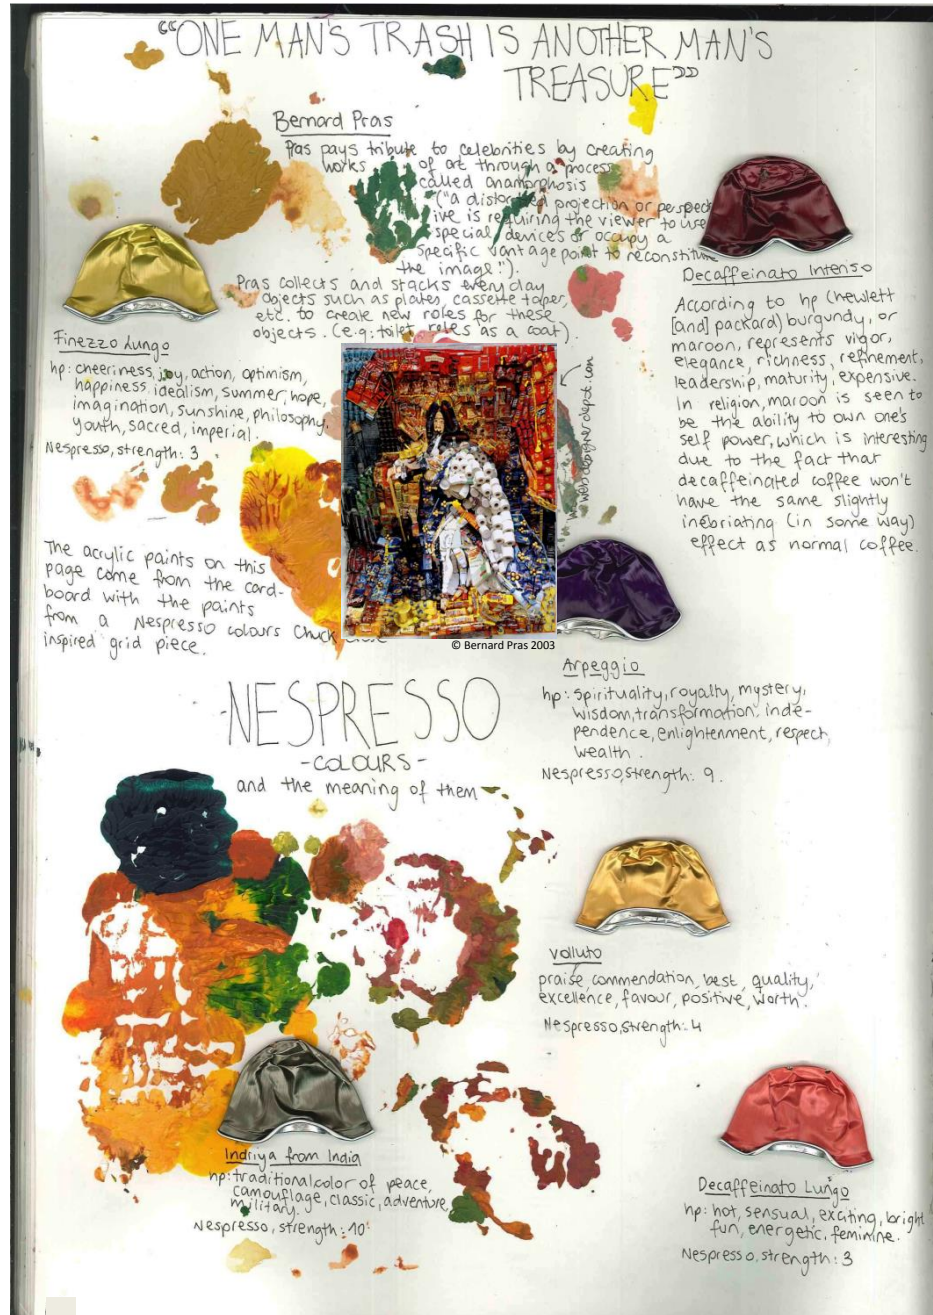 “ONE MAN'S TRASH IS ANOTHER MAN'S
TREASURE”
Bernard Pras
Pras pays tribute to celebrities by creating
works of art through a process
called anamorphosis
("a distorted projection or perspect-
ive is requiring the viewer to use
special devices or occupy a
specific vantage point to reconstitute
the image").
Pras collects and stacks everyday
objects such as plates, cassette tapes,
etc. to create new roles for these
objects. (e.g: toilet roles as a coat)
webdesignerdepot.com
© Bernard Pras 2003
Finezzo Lungo
hp: cheeriness, joy, action, optimism,
happiness, idealism, summer, hope,
imagination, sunshine, philosophy,
youth, sacred, imperial.
Nespresso, strength: 3
The acrylic paints on this
page come from the card-
board with the paints
from a Nespresso colours Chuck Close
inspired grid piece.
Decaffeinato Intenso
According to hp (hewlett
[and] packard) burgundy, or
maroon, represents vigor,
elegance, richness, refinement,
leadership, maturity, expensive.
In religion, maroon is seen to
be the ability to own one's
self power, which is interesting
due to the fact that
decaffeinated coffee won't
have the same slightly
inebriating (in some way)
effect as normal coffee.
Arpeggio
hp: spirituality, royalty, mystery,
wisdom, transformation, inde-
pendence, enlightenment, respect,
wealth.
Nespresso, strength: 9.
-NESPRESSO
-COLOURS-
and the meaning of them
Volluto
praise, commendation, best, quality,
excellence, favour, positive, worth.
Nespresso, strength: 4
Indriya from India
hp: traditional color of peace,
camouflage, classic, adventure,
military.
Nespresso, strength: 10
Decaffeinato Lungo
hp: hot, sensual, exciting, bright
fun, energetic, feminine.
Nespresso, strength: 3